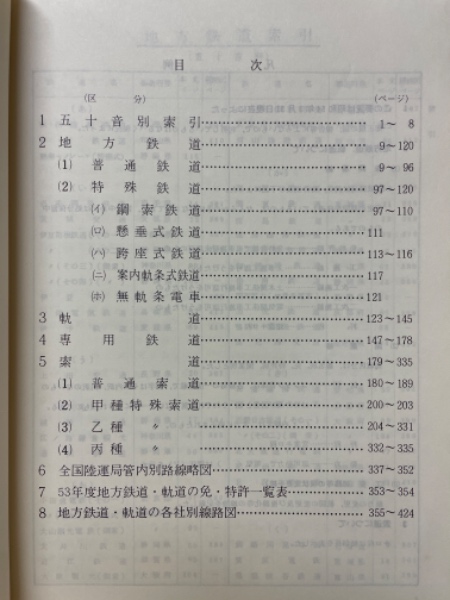 目 次
(区 分) (ページ)
1 五十音別索引………1～ 8
2 地方鉄道………9～120
(1) 普通鉄道………9～ 96
(2) 特殊鉄道………97～120
(イ) 鋼索鉄道………97～110
(ロ) 懸垂式鉄道………111
(ハ) 跨座式鉄道………113～116
(ニ) 案内軌条式鉄道………117
(ホ) 無軌条電車………121
3 軌道………123～145
4 専用鉄道………147～178
5 索道………179～335
(1) 普通索道………180～189
(2) 甲種特殊索道………200～203
(3) 乙種 〃 ………204～331
(4) 丙種 〃 ………332～335
6 全国陸運局管内別路線略図………337～352
7 53年度地方鉄道・軌道の免・特許一覧表………353～354
8 地方鉄道・軌道の各社別線路図………355～424